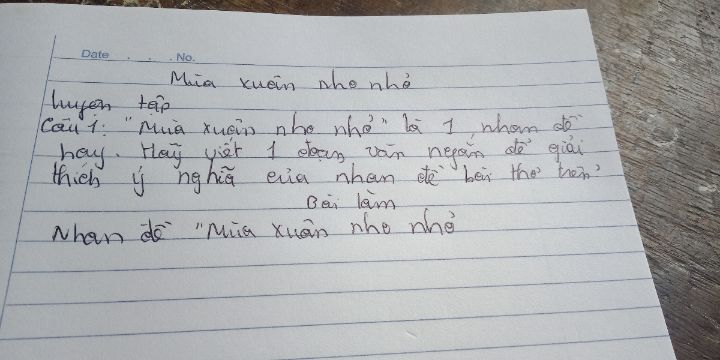 Date . . . No.
Mùa xuân nho nhỏ
luyện tập
Câu 1: "Mùa xuân nho nhỏ" là 1 nhan đề
hay. Hãy viết 1 đoạn văn ngắn để giải
thích ý nghĩa của nhan đề bài thơ trên?
Bài làm
Nhan đề "Mùa xuân nho nhỏ